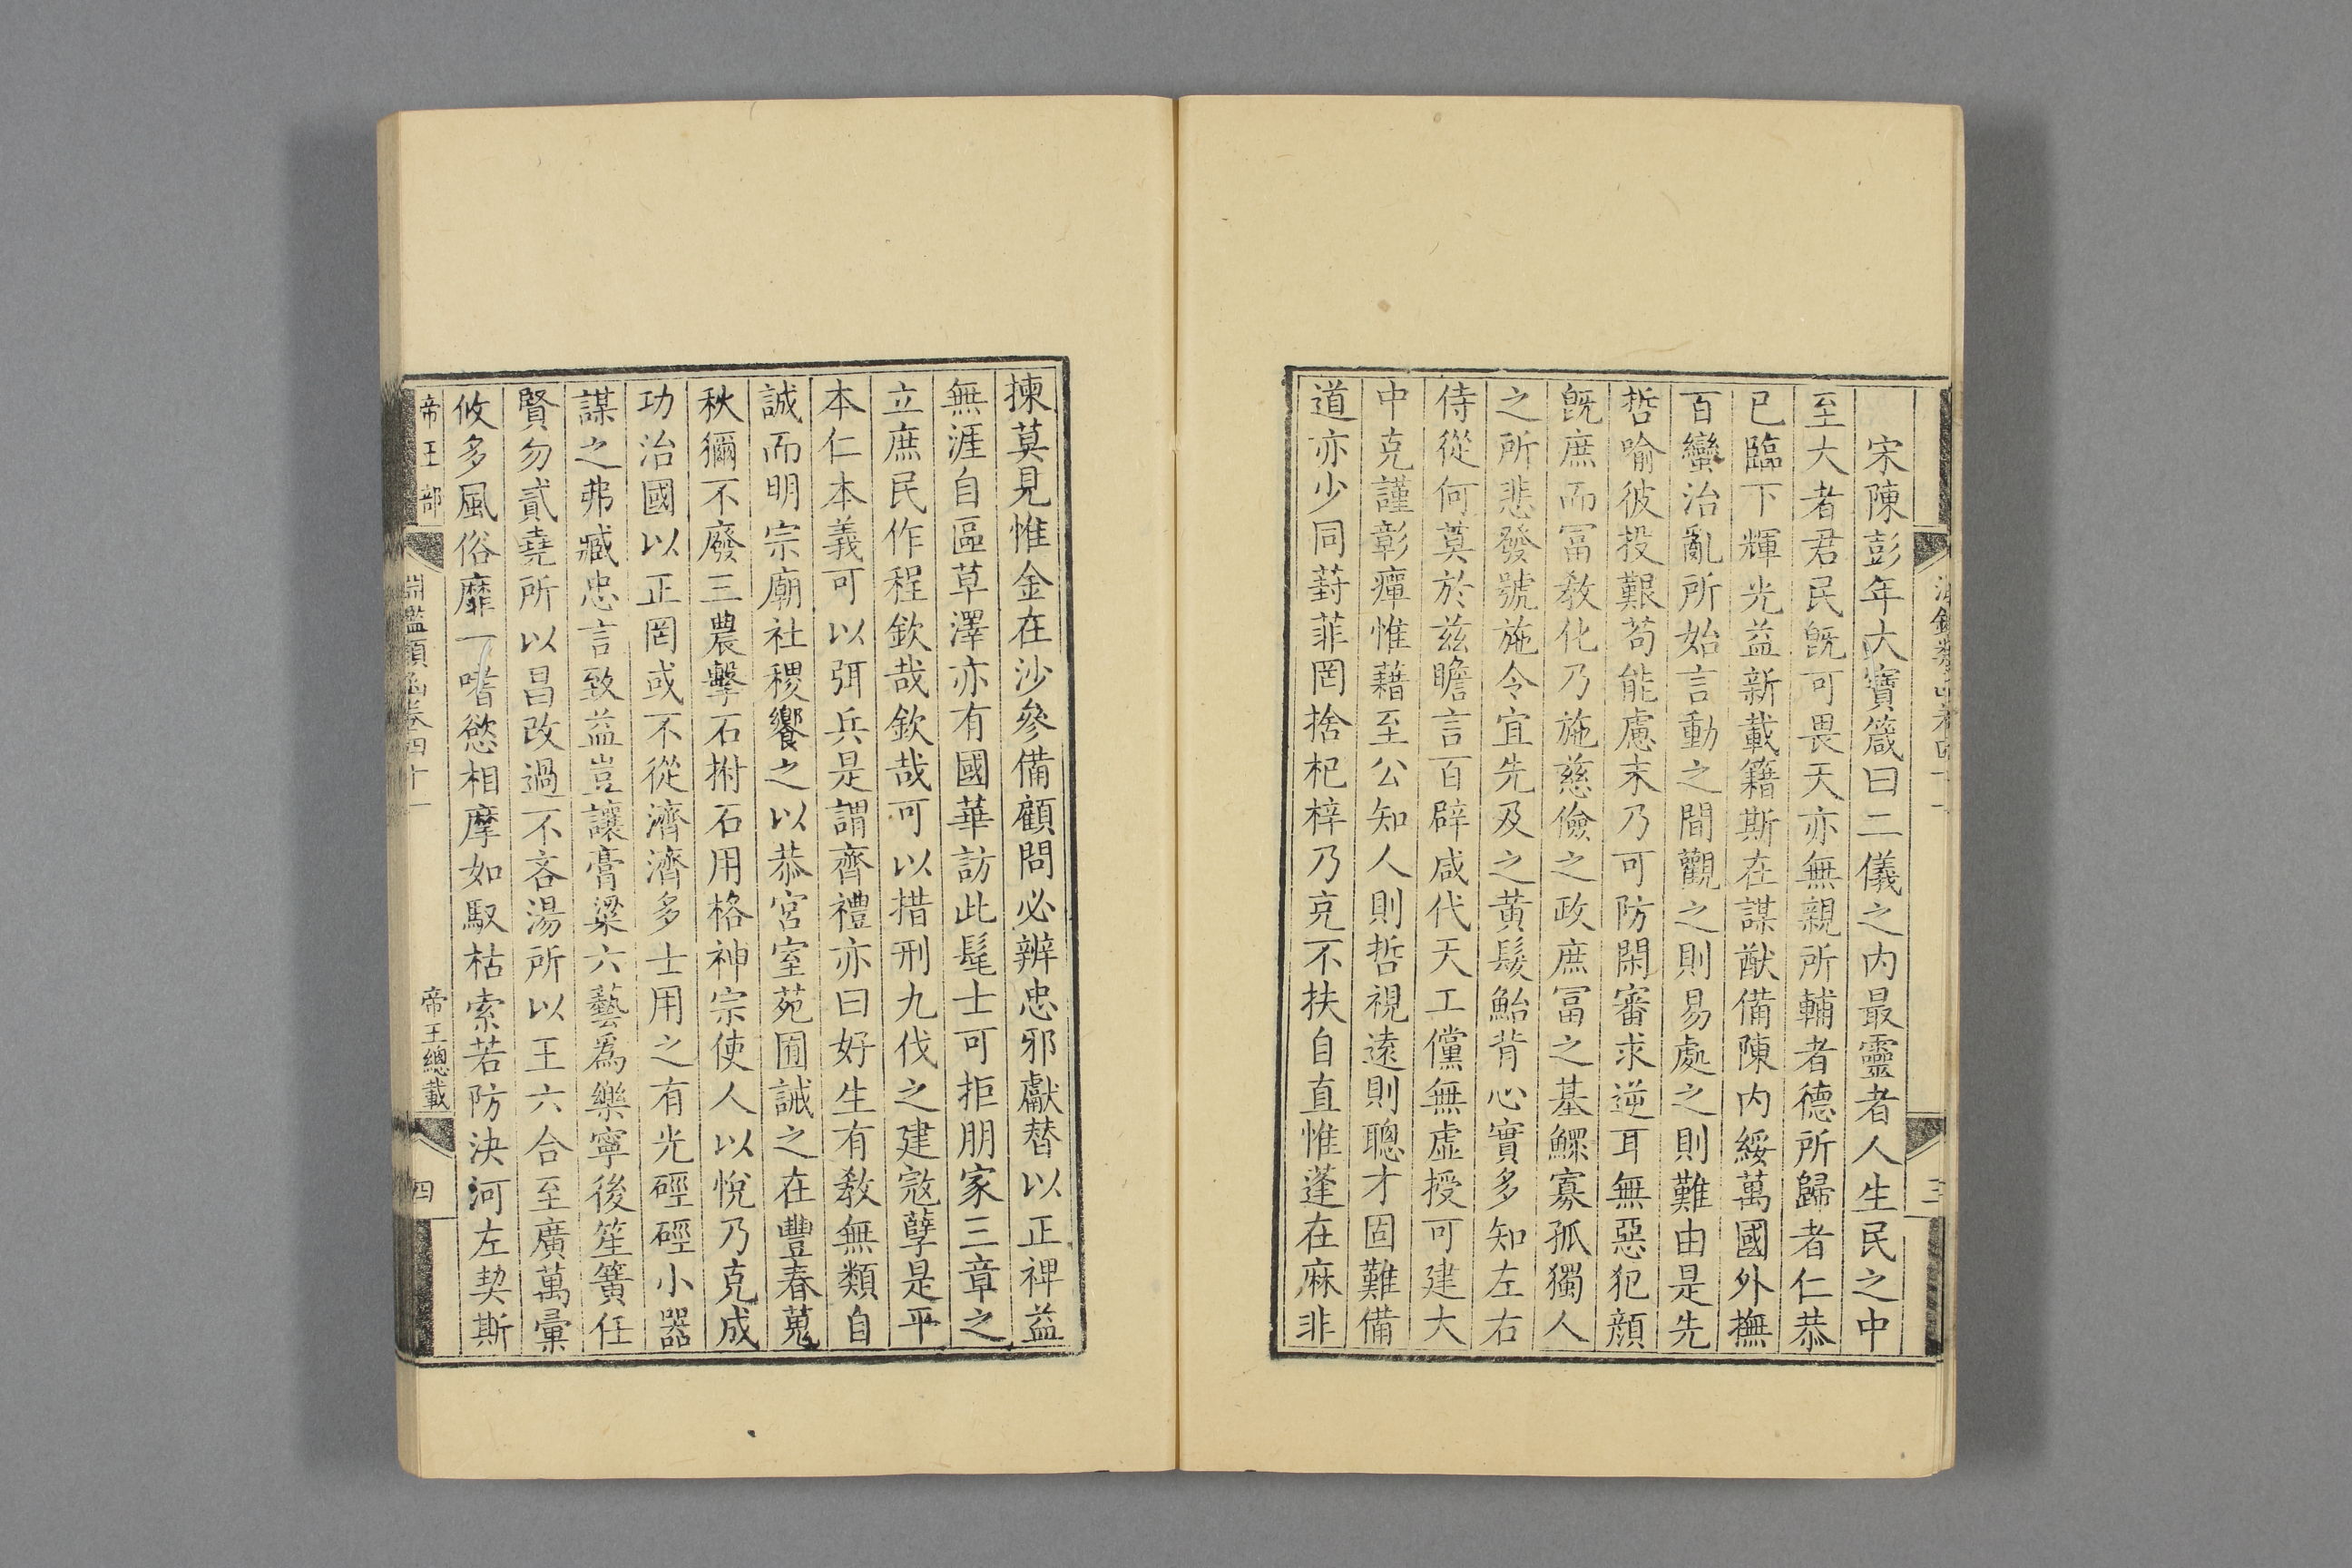 宋陳彭年大寶箴曰二儀之内最靈者人生民之中
至大者君民旣可畏天亦無親所輔者德所歸者仁恭
已臨下輝光益新載籍斯在謀猷備陳内綏萬國外撫
百蠻治亂所始言動之間觀之則易處之則難由是先
哲喻彼投艱苟能慮末乃可防閑審求逆耳無惡犯顔
旣庶而冨敎化乃施慈儉之政庶冨之基鰥寡孤獨人
之所悲發號施令宜先及之黄髮鮐背心實多知左右
侍從何莫於兹瞻言百辟咸代天工儻無虚授可建大
中克謹彰癉惟藉至公知人則哲視遠則聰才固難備
道亦少同葑菲罔捨杞梓乃克不扶自直惟蓬在麻非
三
揀莫見惟金在沙參備顧問必辨忠邪獻替以正裨益
無涯自區草澤亦有國華訪此髦士可拒朋家三章之
立庶民作程欽哉欽哉可以措刑九伐之建寇孽是平
本仁本義可以弭兵是謂齊禮亦曰好生有敎無類自
誠而明宗廟社稷饗之以恭宮室苑囿誡之在豐春蒐
秋獮不廢三農擊石拊石用格神宗使人以悅乃克成
功治國以正罔或不從濟濟多士用之有光硜硜小器
謀之弗臧忠言致益豈讓膏粱六藝爲樂寧後笙簧任
賢勿貳堯所以昌改過不吝湯所以王六合至廣萬彙
攸多風俗靡一嗜慾相摩如馭枯索若防決河左契斯
帝王部
淵鑑類函卷四十一
帝王總載
四